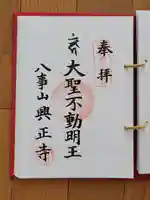 奉拝
大聖不動明王
八事山興正寺